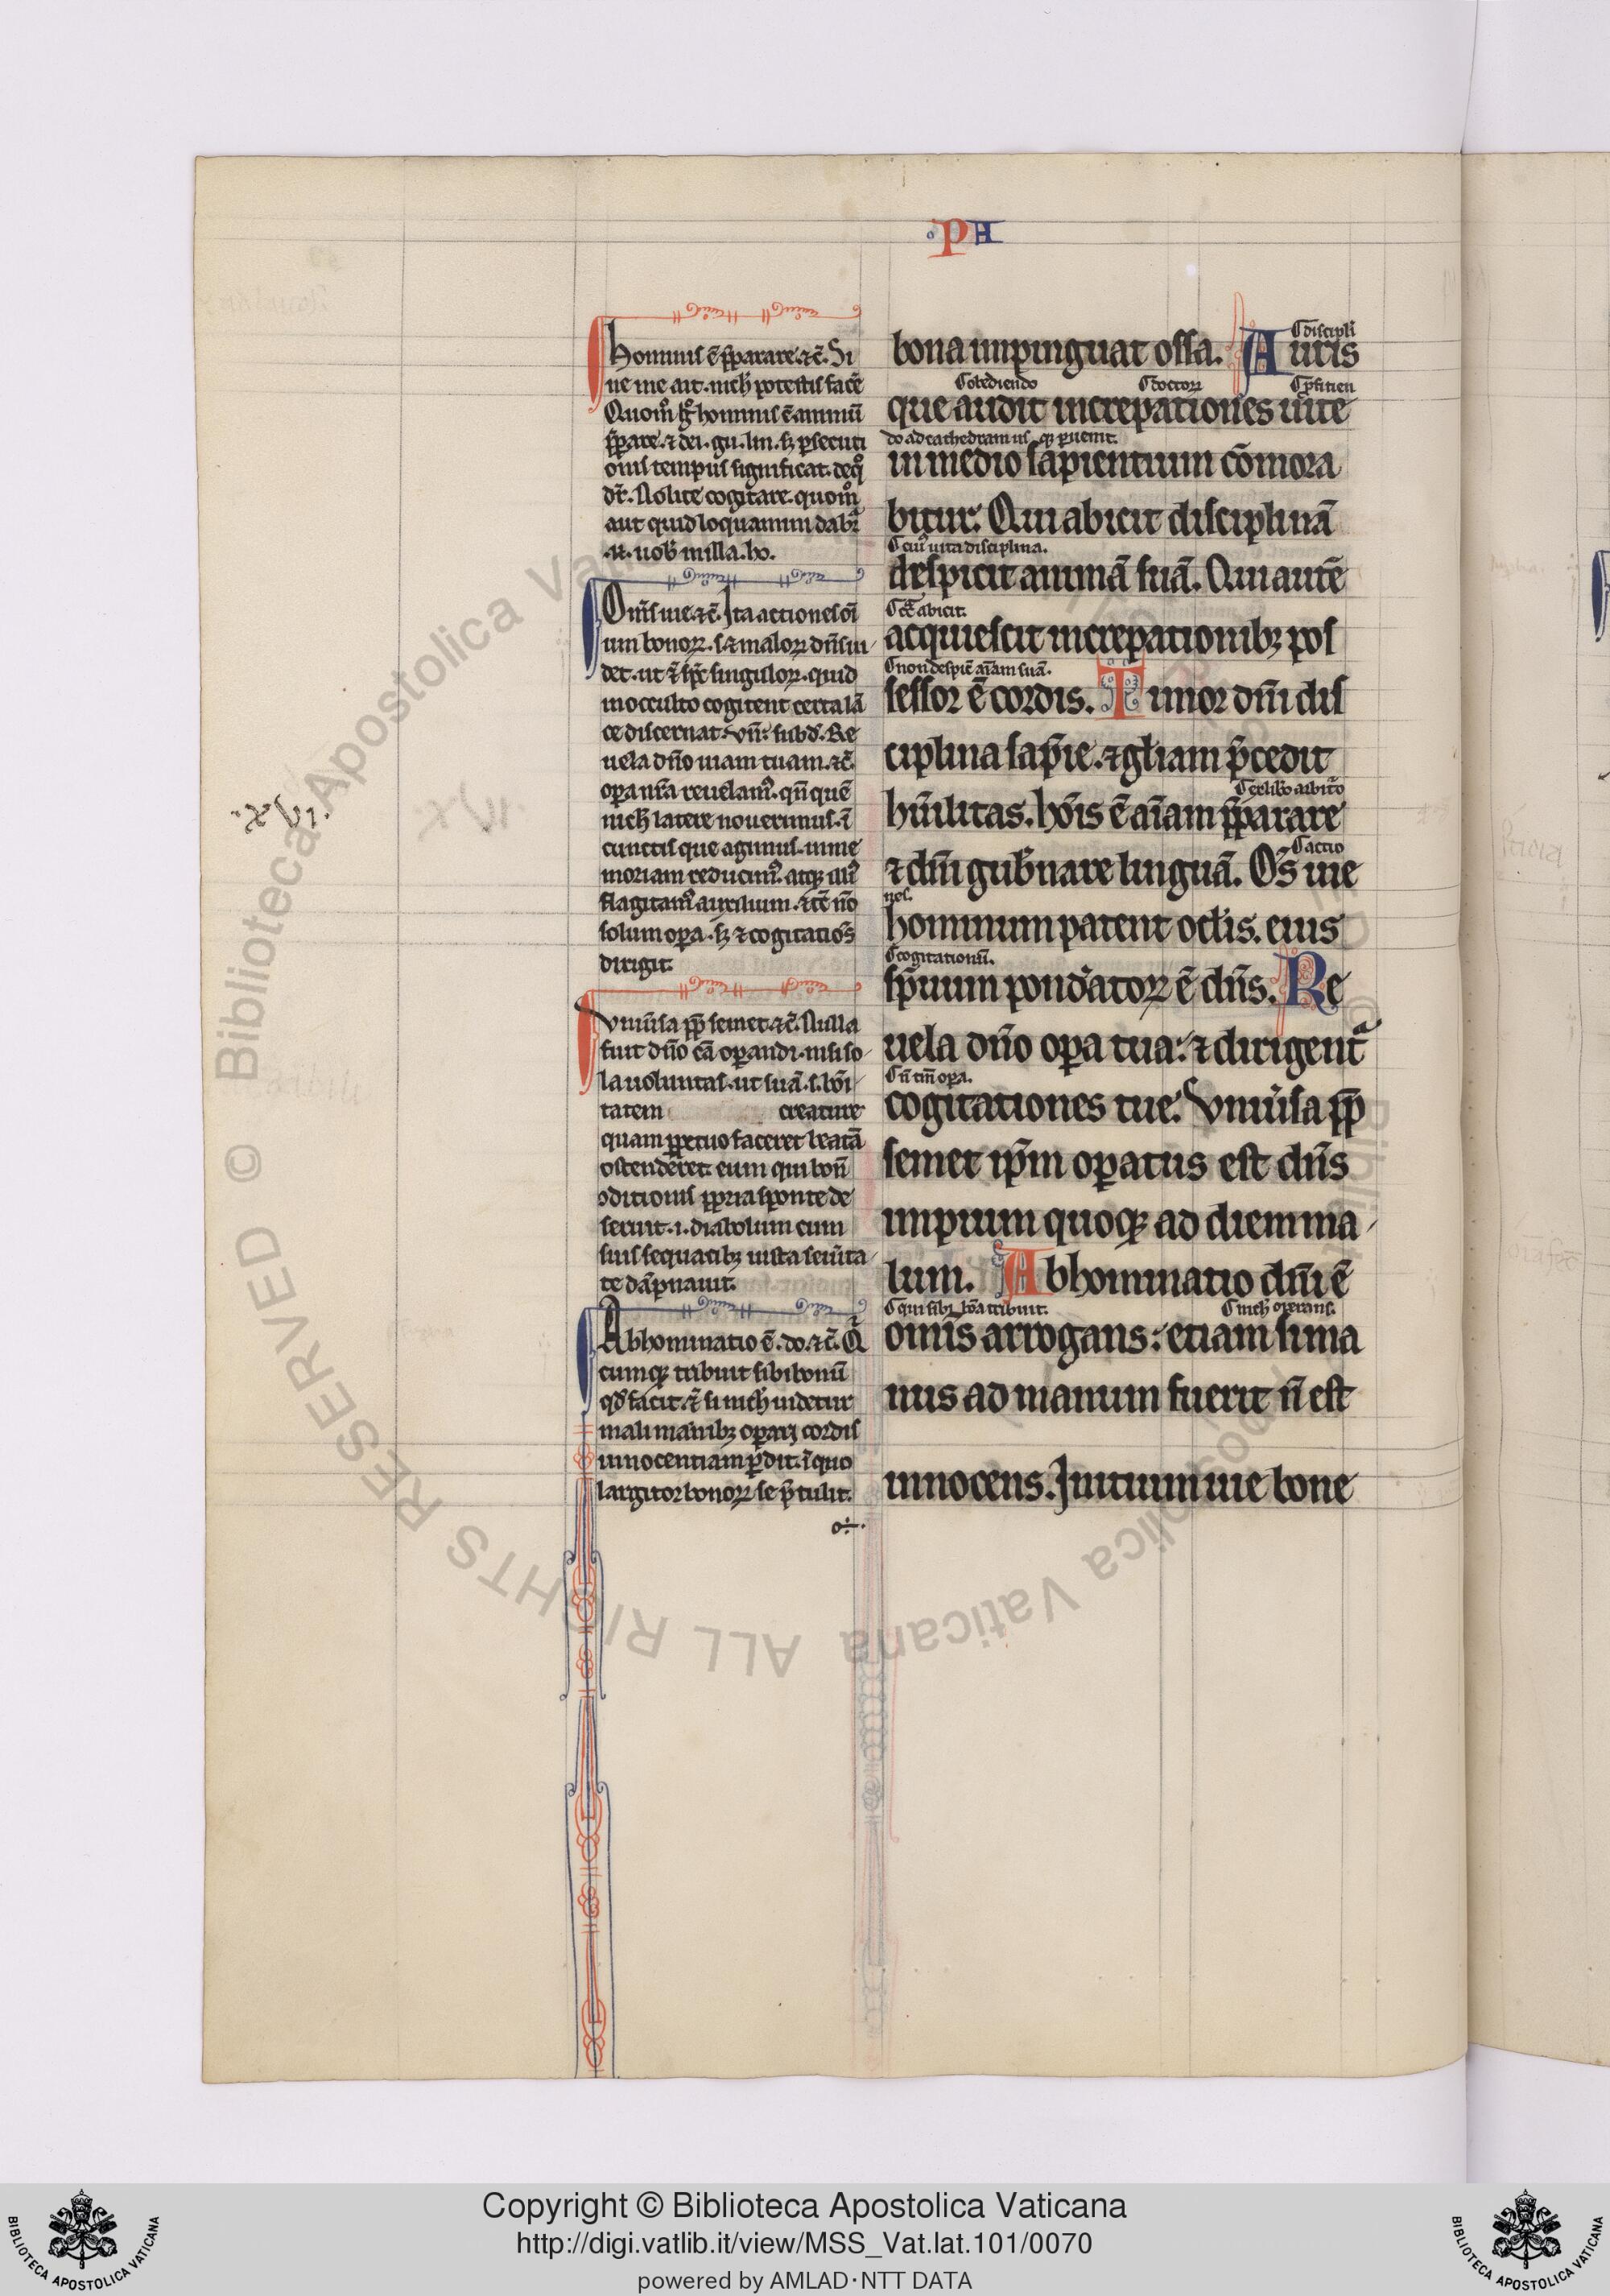 PA
hominis ē p̄parare ⁊c̄. Si
ne me ait nich̄ potestis facē
Quom̊ g̊ hominis ē animū
p̄pare ⁊ dei. gu. lin. sꝫ ꝑsecuti
onis tempus significat. deq̊
dr̄. Nolite cogitare. quom̊
aut quid loquamini dabr̄
.n. uob̄ in illa. ho.
Om̄s uie. ⁊c̄. Ita actiones oī
um bonoꝝ. s. ⁊ maloꝝ dn̄s ui
det. ut ⁊̄ sp̄c singuloꝝ. quid
in occulto cogitent certa lā
ce discernat. Vn̄. subd̄. Re
uela dn̄o uiam tuam. ⁊c̄.
oꝑa nr̄a reuelam᷒. qn̄ quē
nich̄ latere nouerimus. ī
cunctis que agimus. in me
moriam reducim᷒. atqꝫ illi᷒
flagitam᷒ auxilium. ⁊ tc̄ nō
solum oꝑa. sꝫ ⁊ cogitatiōs
dirigit.
Vniūsa pp̄ semet. ⁊c̄. Nulla
fuit dn̄o cā oꝑandi. nisi so
la uoluntas. ut suā. s. bōi
tatem creature
quam ꝑpetuo faceret beatā
ostenderet. eum qui bon̄
ꝯditionis ꝓpria sponte de
seruit. i. diabolum cum
suis sequacibꝫ iusta seūita
te dāpnauit.
Abhominatio ē. do. ⁊c̄. Q̄
cumqꝫ tribuit sibi bonū
qd̄ facit. ⁊̄ si nich̄ uidetur
mali manibꝫ oꝑari cordis
innocentiam ꝑdit. ī quo
largitor bonoꝝ se p̄tulit.
.xvi.
bona inpinguat ossa. Auris
discipli
que audit increpationes uite
obediendo doctoꝝ
in medio sapientium cōmora
do ad cathedram
bitur. Qui abicit disciplinā
despicit animā suā. Qui autē
cui᷒ uita disciplina.
acquiescit increpationibꝫ pos
abicit.
sessor ē cordis. Timor dn̄i dis
non despic̄ aīam suā.
ciplina sap̄ie. ⁊ gl̄iam p̄cedit
hūilitas. hōis ē aīam p̄parare
lib̄o arbitro
⁊ dn̄i gub̄nare linguā. Om̄s uie
actio
nes.
hominum patent oclis. eius
sp̄uum pond̄atoꝝ ē dn̄s. Re
cogitationū.
uela dn̄o oꝑa tua: ⁊ dirigent᷑
cogitationes tue. Vniūsa pp̄
n̄ tm̄ oꝑa.
semet ip̄m oꝑatus est dn̄s
impium quoqꝫ ad diem ma
lum. Abhominatio dn̄i ē
omīs arrogans: etiam si ma
qui sibi bōa tribuit. nich̄ operans.
nus ad manum fuerit n̄ est
innocens. Initium uie bone
Copyright © Biblioteca Apostolica Vaticana
http://digi.vatlib.it/view/MSS_Vat.lat.101/0070
powered by AMLAD·NTT DATA
© Biblioteca Apostolica Vaticana ALL RIGHTS RESERVED
BIBLIOTECA APOSTOLICA VATICANA
BIBLIOTECA APOSTOLICA VATICANA